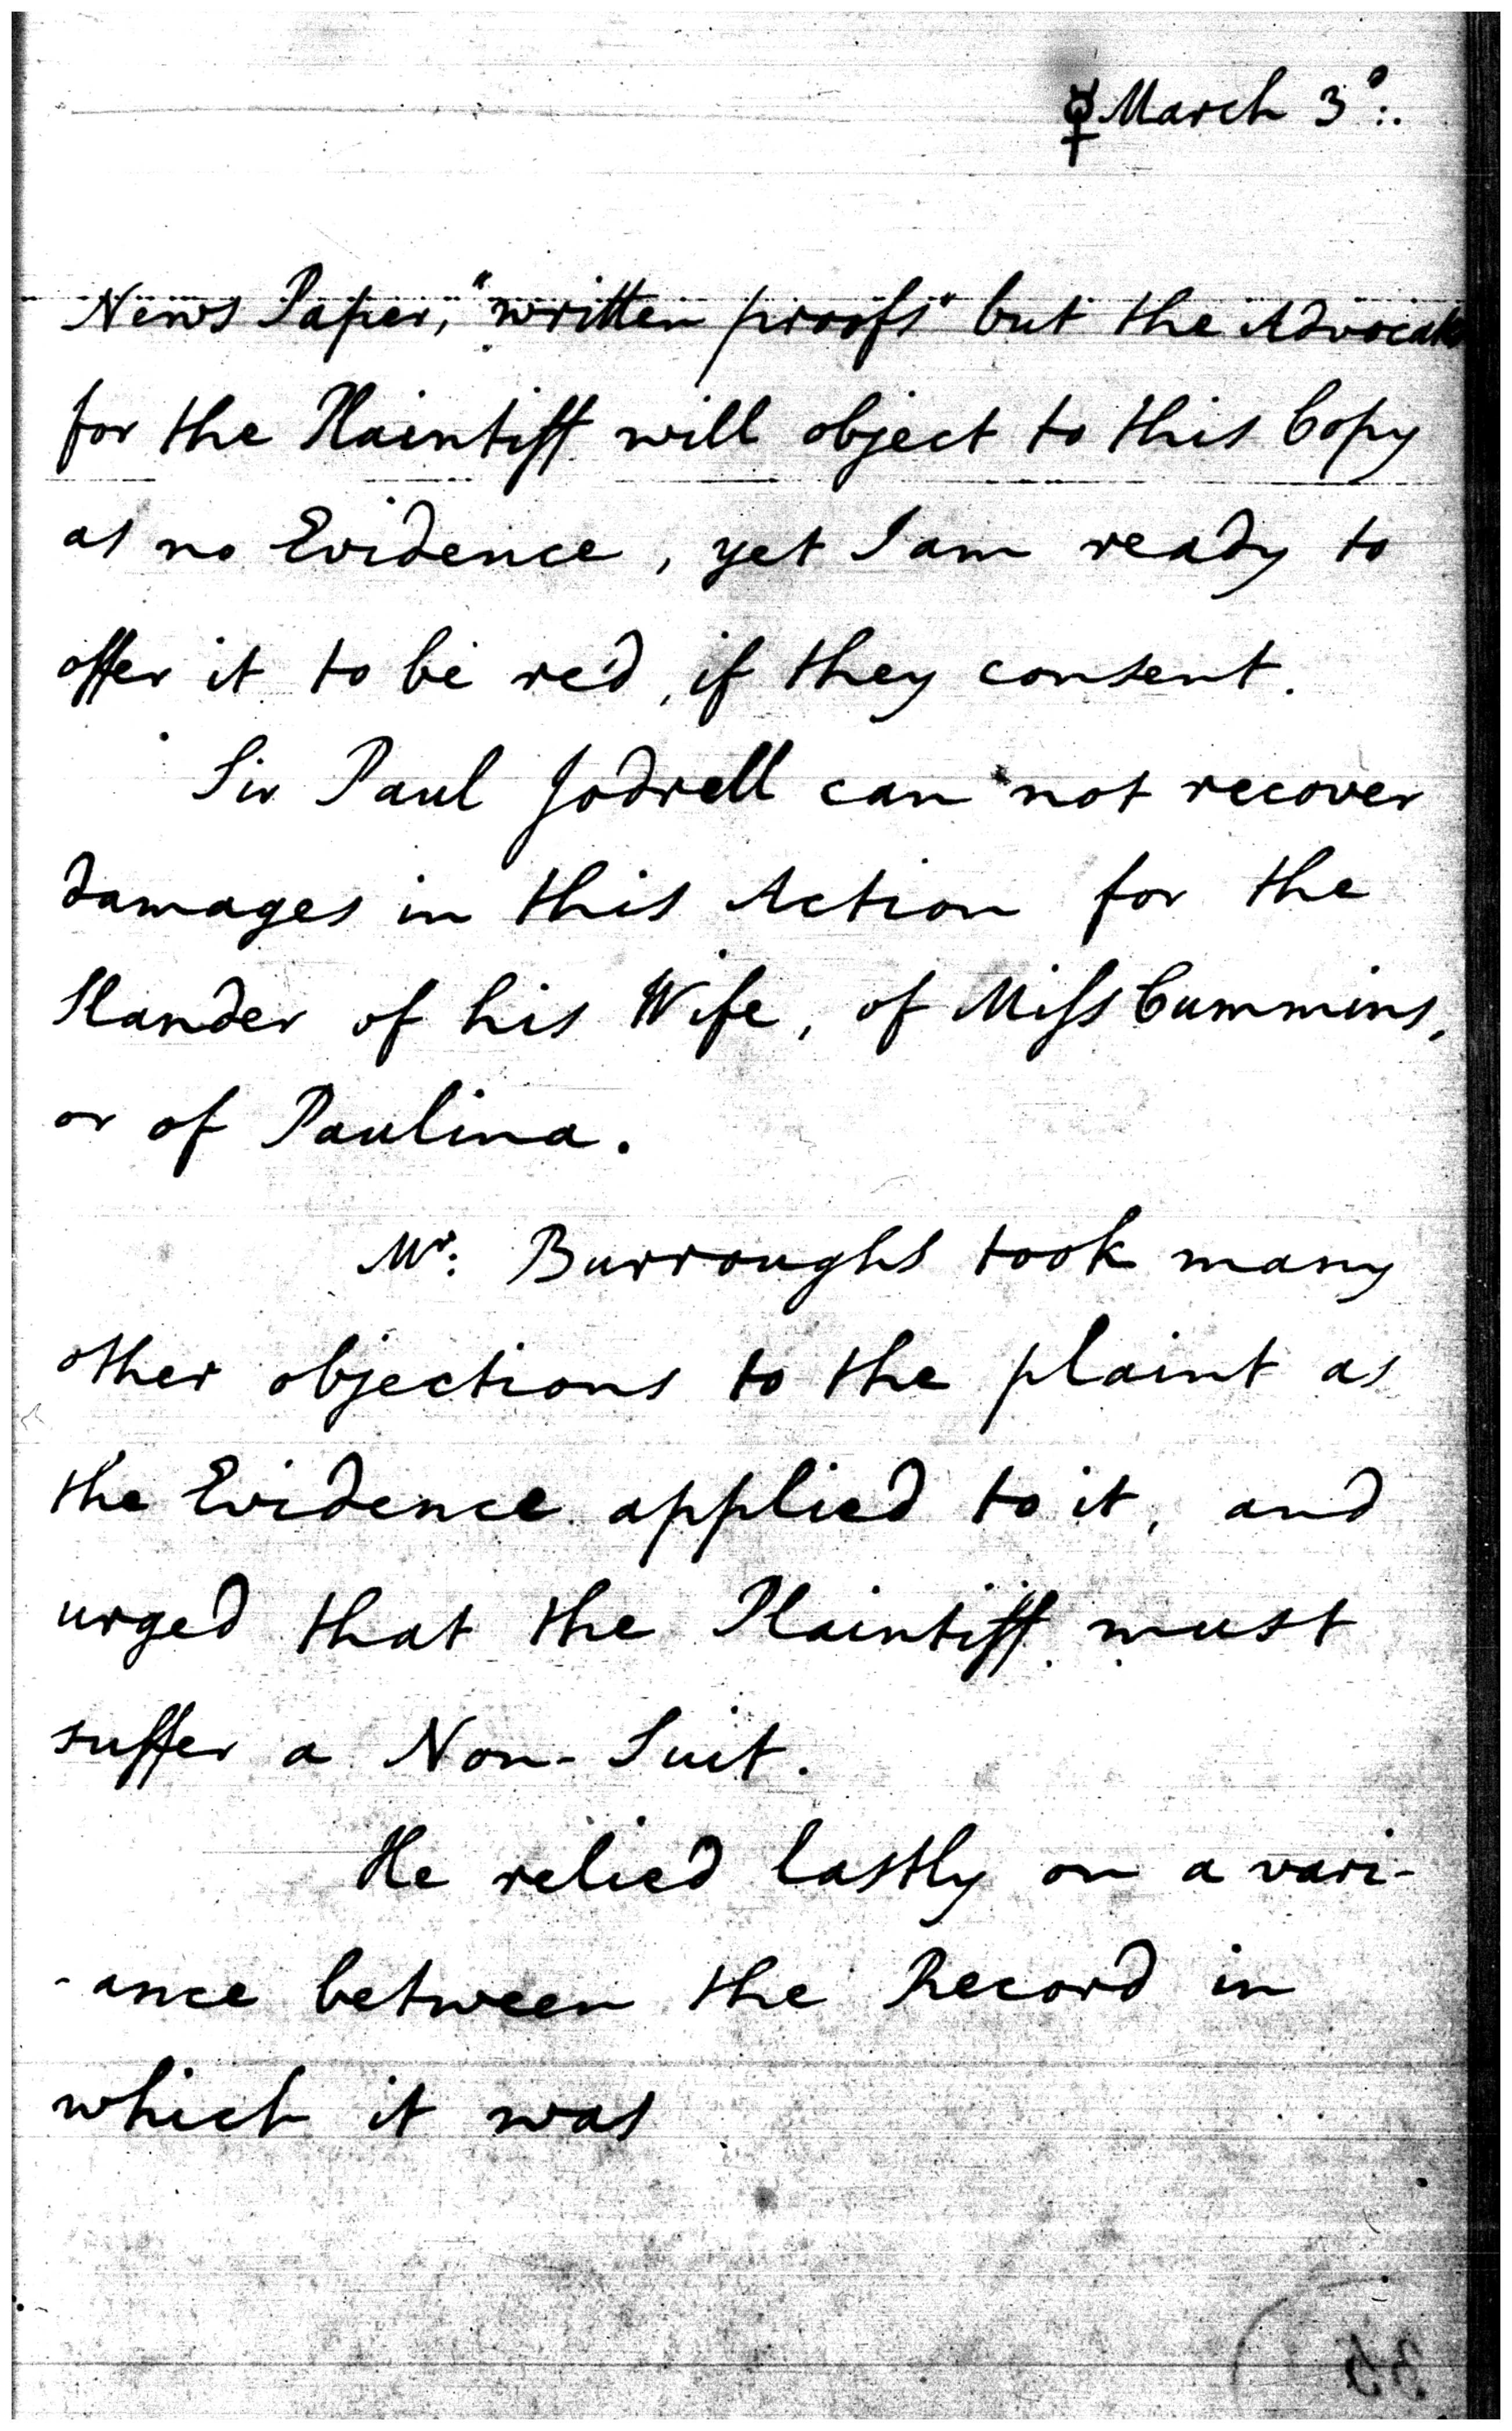 ☿ March 3°:.
News Paper, "written proofs" but the Advocate
for the Plaintiff will object to this Copy
as no Evidence, yet I am ready to
offer it to be red, if they consent.
Sir Paul Jodrell can not recover
damages in this Action for the
Slander of his Wife, of Miſs Cummins,
or of Paulina.
Mr: Burroughs took many
other objections to the plaint as
the Evidence applied to it, and
urged that the Plaintiff must
suffer a Non-Suit.
He relied lastly on a vari-
-ance between the Record in
which it was